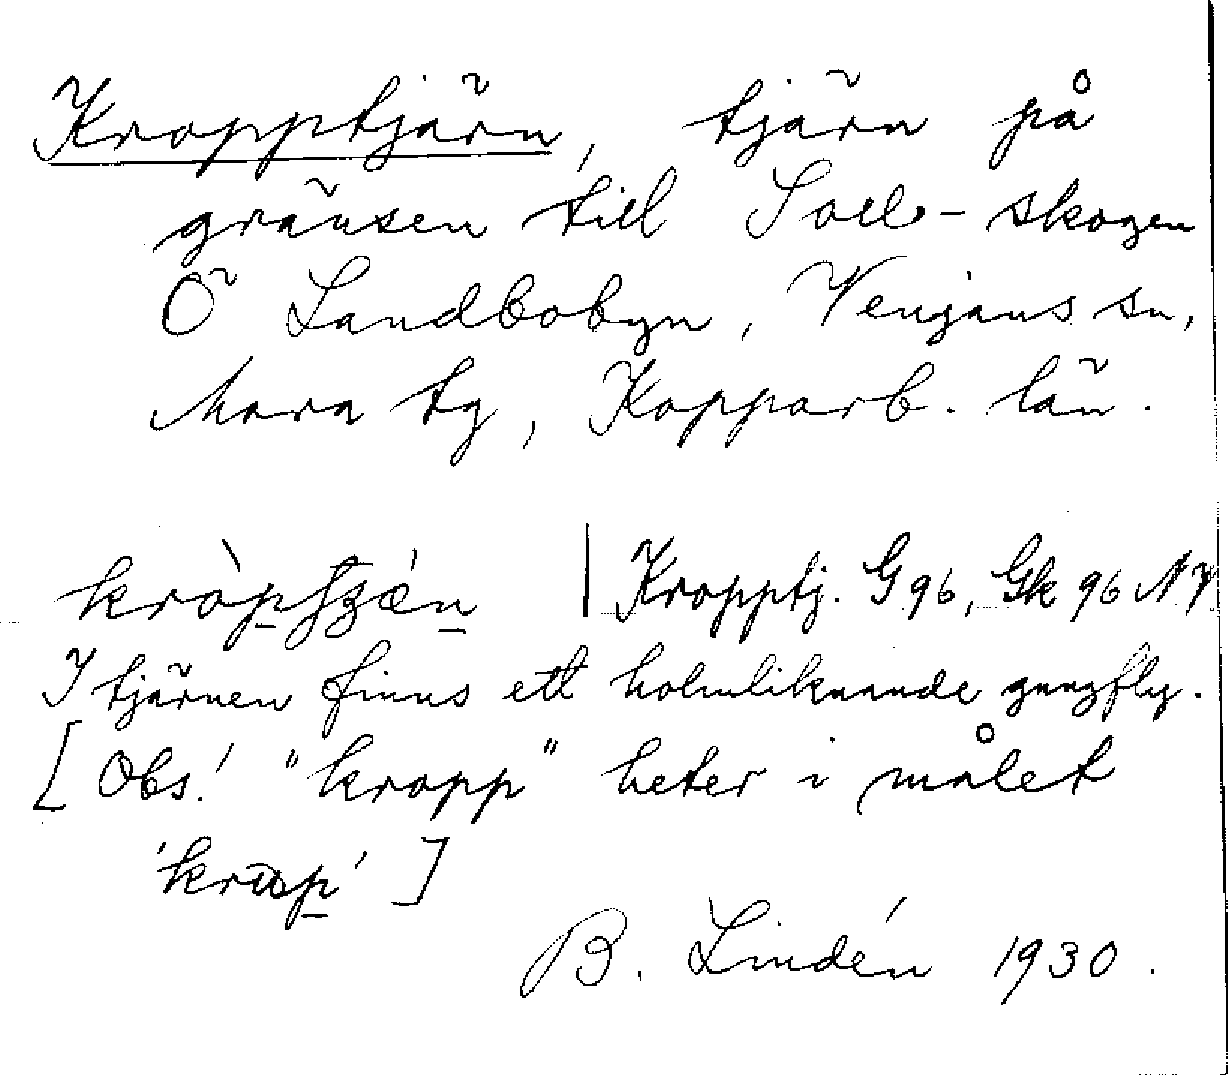 Kropptjärn, tjärn på
gränsen till Soll-skogen
Ö Landbobyn, Venjans sn,
Mora tg, Kopparb. län.
| Kropptj. G 96, Gk 96 NV
I tjärnen finns ett holmliknande gungfly.
[Obs! "kropp" heter i målet
]
B. Lindén 1930.